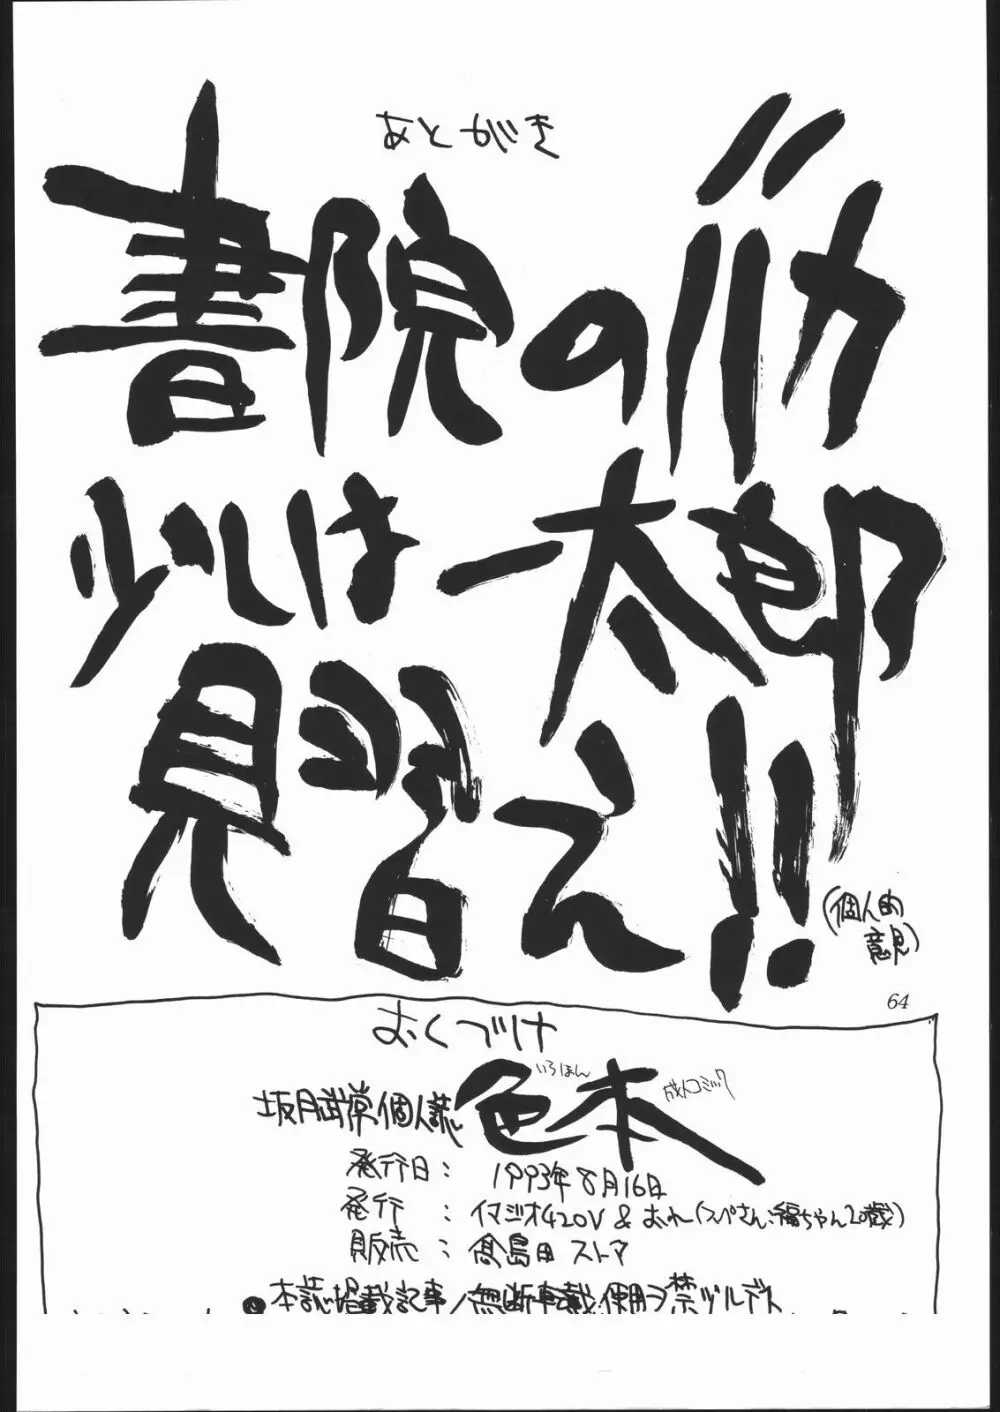 あとがき
書院のバカ
少しは一太郎
見習え!!
(個人的
意見)
64
おくづけ
坂月武常個人誌
色本
いろほん
成人コミック
発行日: 1993年8月16日
発行 : イマジオ420V & おれ(スペさん、福ちゃん20歳)
販売 : 髙島田 ストア
●本誌掲載記事ノ無断転載、使用ヲ禁ヅルデス